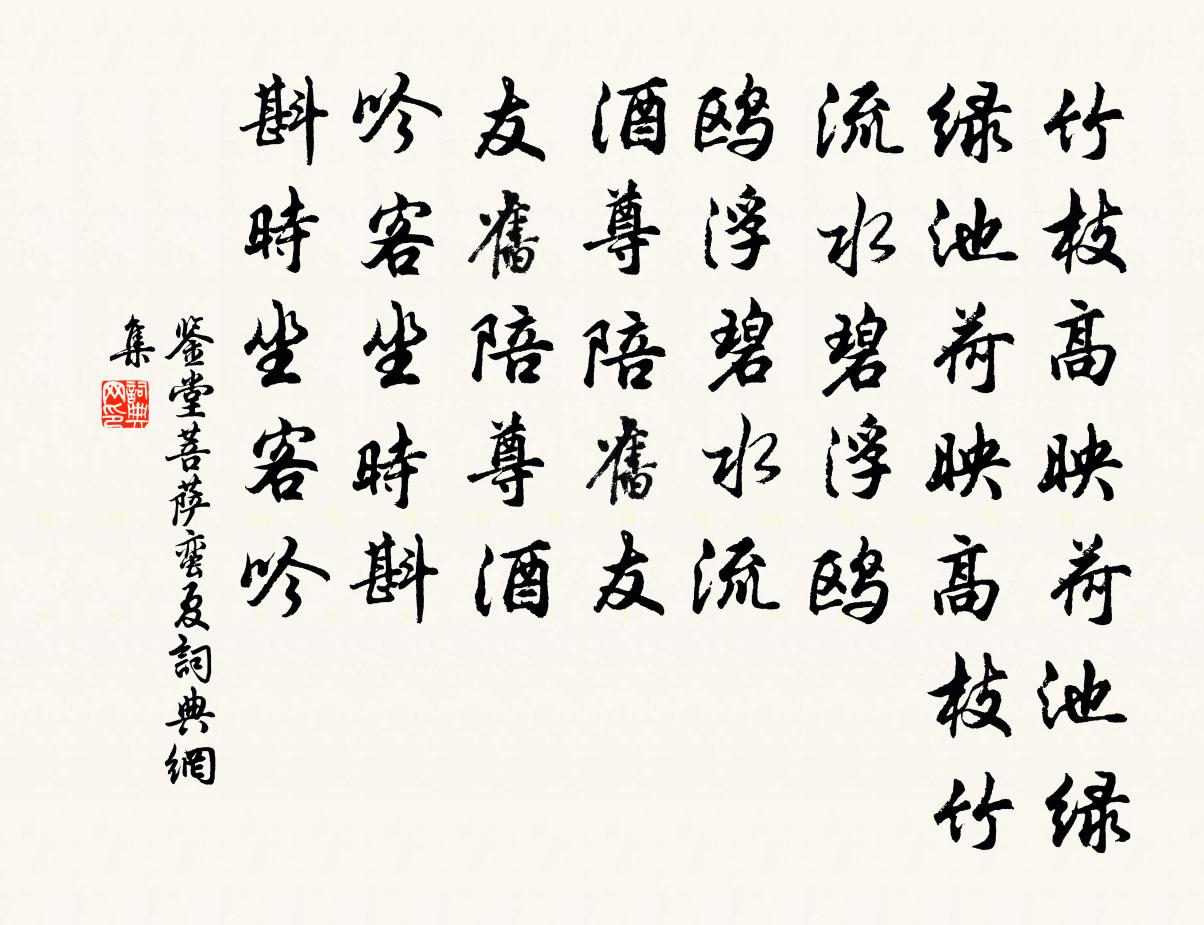 竹枝高映荷池绿
绿池荷映高枝竹
流水碧浮鸥
鸥浮碧水流
酒尊陪舊友
友舊陪尊酒
吟客坐時斟
斟時坐客吟
鉴堂菩萨蛮夏詞典網
集
詞典网印